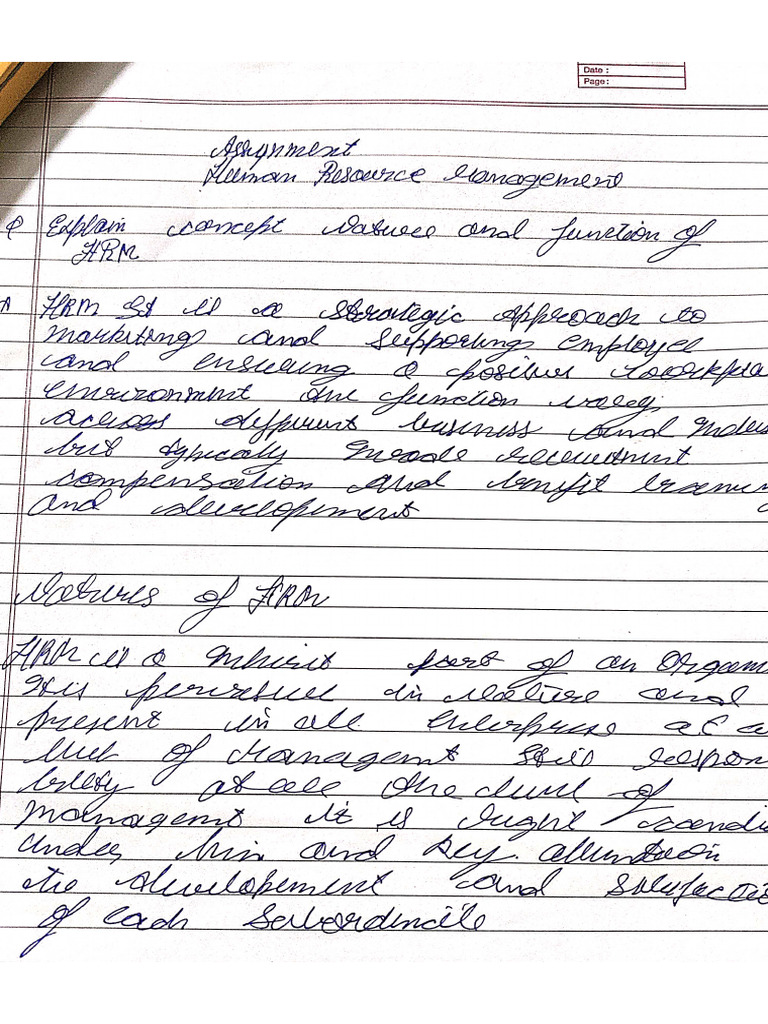 Date :
Page :
Assignment
Human Resource Management
Q Explain concept Nature and function of
HRM
A HRM It is a strategic approach to
marketing and supporting employee
and ensuring a positive workpla
environment the function vary
across different business and Indus
but typicaly recruitment
compensation and benifit traning
and development
Natures of HRM
HRM is a part of an Organi
It is in Nature and
present in all enterprise at a
of Managment It is respon
at all the of
managment it is
under him and
the development and satisfacti
of each Subordinate